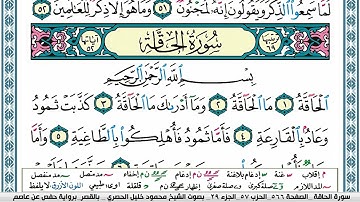 لَمَّا سَمِعُوا۟ ٱلذِّكْرَ وَيَقُولُونَ إِنَّهُۥ لَمَجْنُونٌ ٥١ وَمَا هُوَ إِلَّا ذِكْرٌ لِّلْعَٰلَمِينَ ٥٢
سُورَةُ الْحَاقَّةِ
بِسْمِ ٱللَّهِ ٱلرَّحْمَٰنِ ٱلرَّحِيمِ
ٱلْحَآقَّةُ ١ مَا ٱلْحَآقَّةُ ٢ وَمَآ أَدْرَىٰكَ مَا ٱلْحَآقَّةُ ٣ كَذَّبَتْ ثَمُودُ
وَعَادٌۢ بِٱلْقَارِعَةِ ٤ فَأَمَّا ثَمُودُ فَأُهْلِكُوا۟ بِٱلطَّاغِيَةِ ٥ وَأَمَّا
سورة الحاقة. الصفحة ٥٦٦ الحزب ٥٧. الجزء ٢٩. بصوت الشيخ محمود خليل الحصري . بالقصر برواية حفص عن عاصم